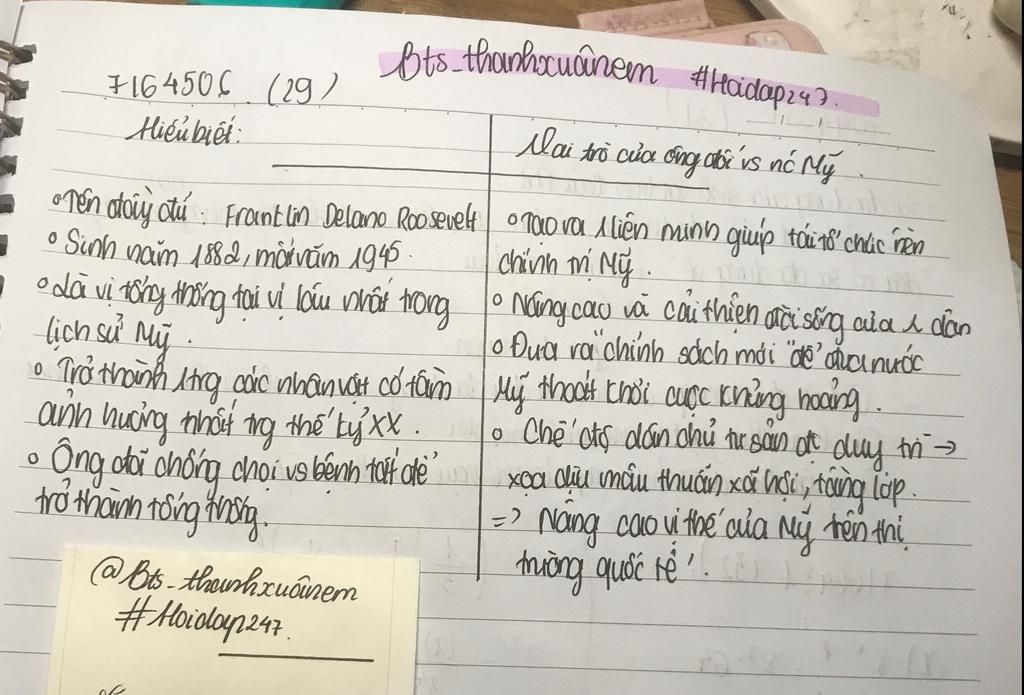 Bts_thanhxuânem #Hoidap247.
7164506 (29)
Hiểu biết:
o Tên đầy đủ: Franklin Delano Roosevelt
o Sinh năm 1882, mất năm 1945.
o Là vị tổng thống tại vị lâu nhất trong
lịch sử Mỹ.
o Trở thành 1 trg các nhân vật có tầm
ảnh hưởng nhất trg thế kỷ XX.
o Ông đã chống chọi vs bệnh tật để
trở thành tổng thống.
Vai trò của ông đối vs nc Mỹ.
o Tạo ra 1 liên minh giúp tái tổ chức nền
chính trị Mỹ.
o Nâng cao và cải thiện đời sống của dân
o Đưa ra "chính sách mới" để đưa nước
Mỹ thoát khỏi cuộc khủng hoảng.
o Chế độ dân chủ tư sản đc duy trì →
xoa dịu mâu thuẫn xã hội, tầng lớp.
=> Nâng cao vị thế của Mỹ trên thị
trường quốc tế.
@Bts_thanhxuânem
#Hoidap247.